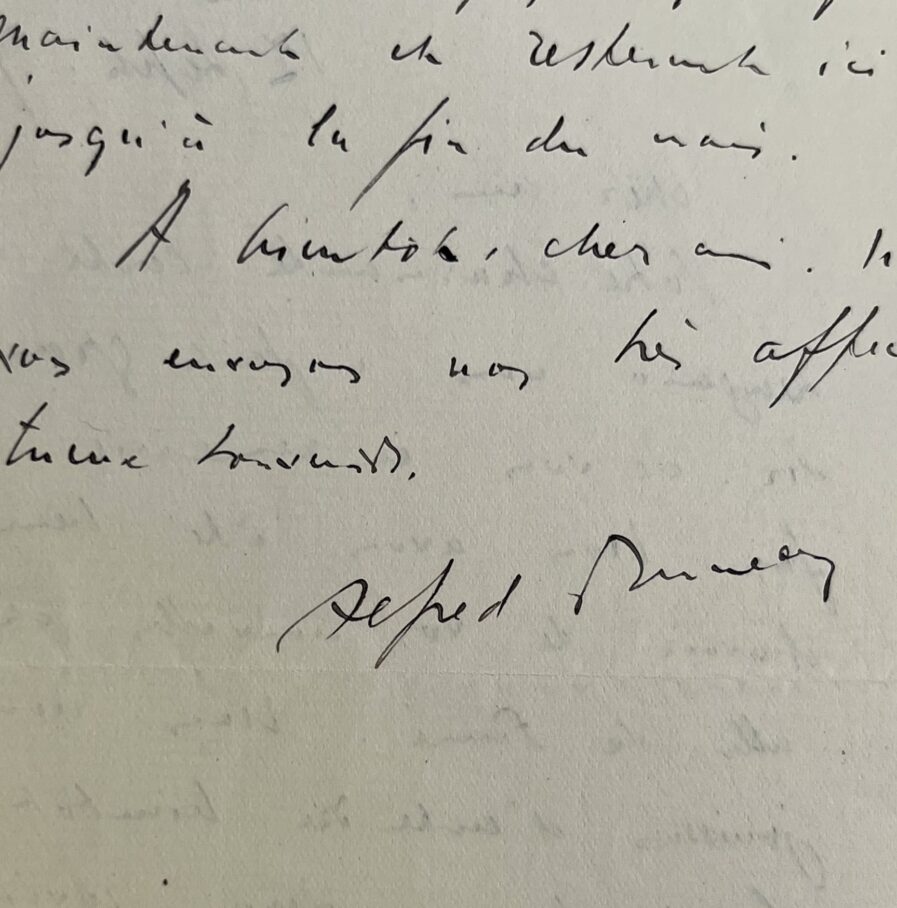 maintenant et resterons ici
jusqu'à la fin du mois.
A bientôt, cher ami.
vous envoyons nos très affec
tueux souvenirs.
Alfred Bruneau